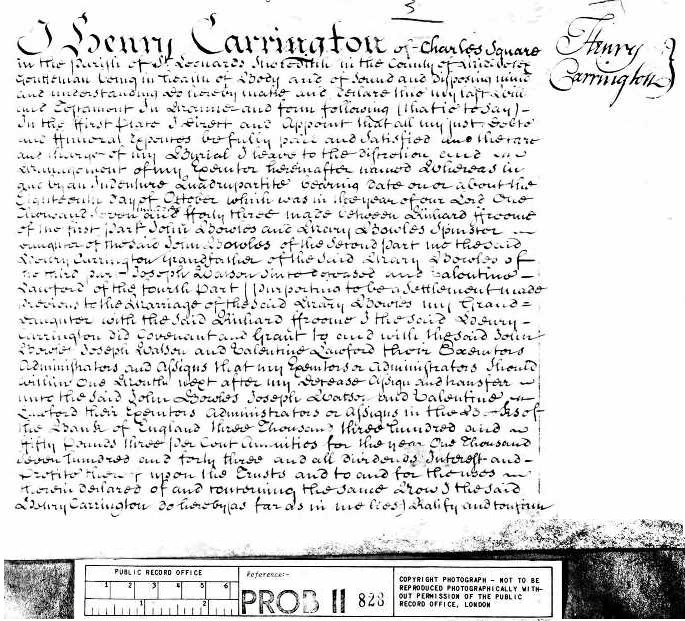 3
I Henry Carrington of Charles Square
Henry
Carrington
in the parish of St Leonards Shoreditch in the County of Middlesex
Gentleman being in health of Body and of sound and disposing mind
and understanding do hereby make and declare this my last Will
and Testament in Manner and form following (that is to say)
In the first Place I direct and Appoint that all my just Debts
and funeral Expences be fully paid and Satisfied and the care
and charge of my Burial I leave to the discretion and
management of my Executor hereinafter named Whereas in
and by an Indenture Quadrupartite bearing date on or about the
Eighteenth day of October which was in the year of our Lord One
Thousand Seven and fforty three made between
of the first Part John Bowles and Mary Bowles Spinster
daughter of the said John Bowles of the Second Part me the said
Henry Carrington Grandfather of the said Mary Bowles of
the third part Joseph Watson since deceased and Valentine
Lawford of the fourth Part (purporting to be a Settlement made
previous to the Marriage of the said Mary Bowles my Grand=
daughter with the said I the said Henry
Carrington did Covenant and Grant to and with the said John
Bowles Joseph Watson and Valentine Lawford their Executors
Administrators and Assigns that my Executors or Administrators should
within One Month next after my decease Assign and transfer
unto the said John Bowles Joseph Watson and Valentine
Lawford their Executors Administrators or Assigns in the Books of
the Bank of England three Thousand three hundred and
fifty Pounds three per Cent Annuities for the year One Thousand
Seven hundred and forty three and all dividends Interest and
Profits thereof upon the Trusts and to and for the uses
therein declared of and concerning the same Now I the said
Henry Carrington do hereby (as far as in me lies) Ratify and confirm
PUBLIC RECORD OFFICE
1 2 3 4 5 6
1 2
Reference:-
PROB 11 828
COPYRIGHT PHOTOGRAPH - NOT TO BE
REPRODUCED PHOTOGRAPHICALLY WITH-
OUT PERMISSION OF THE PUBLIC
RECORD OFFICE, LONDON